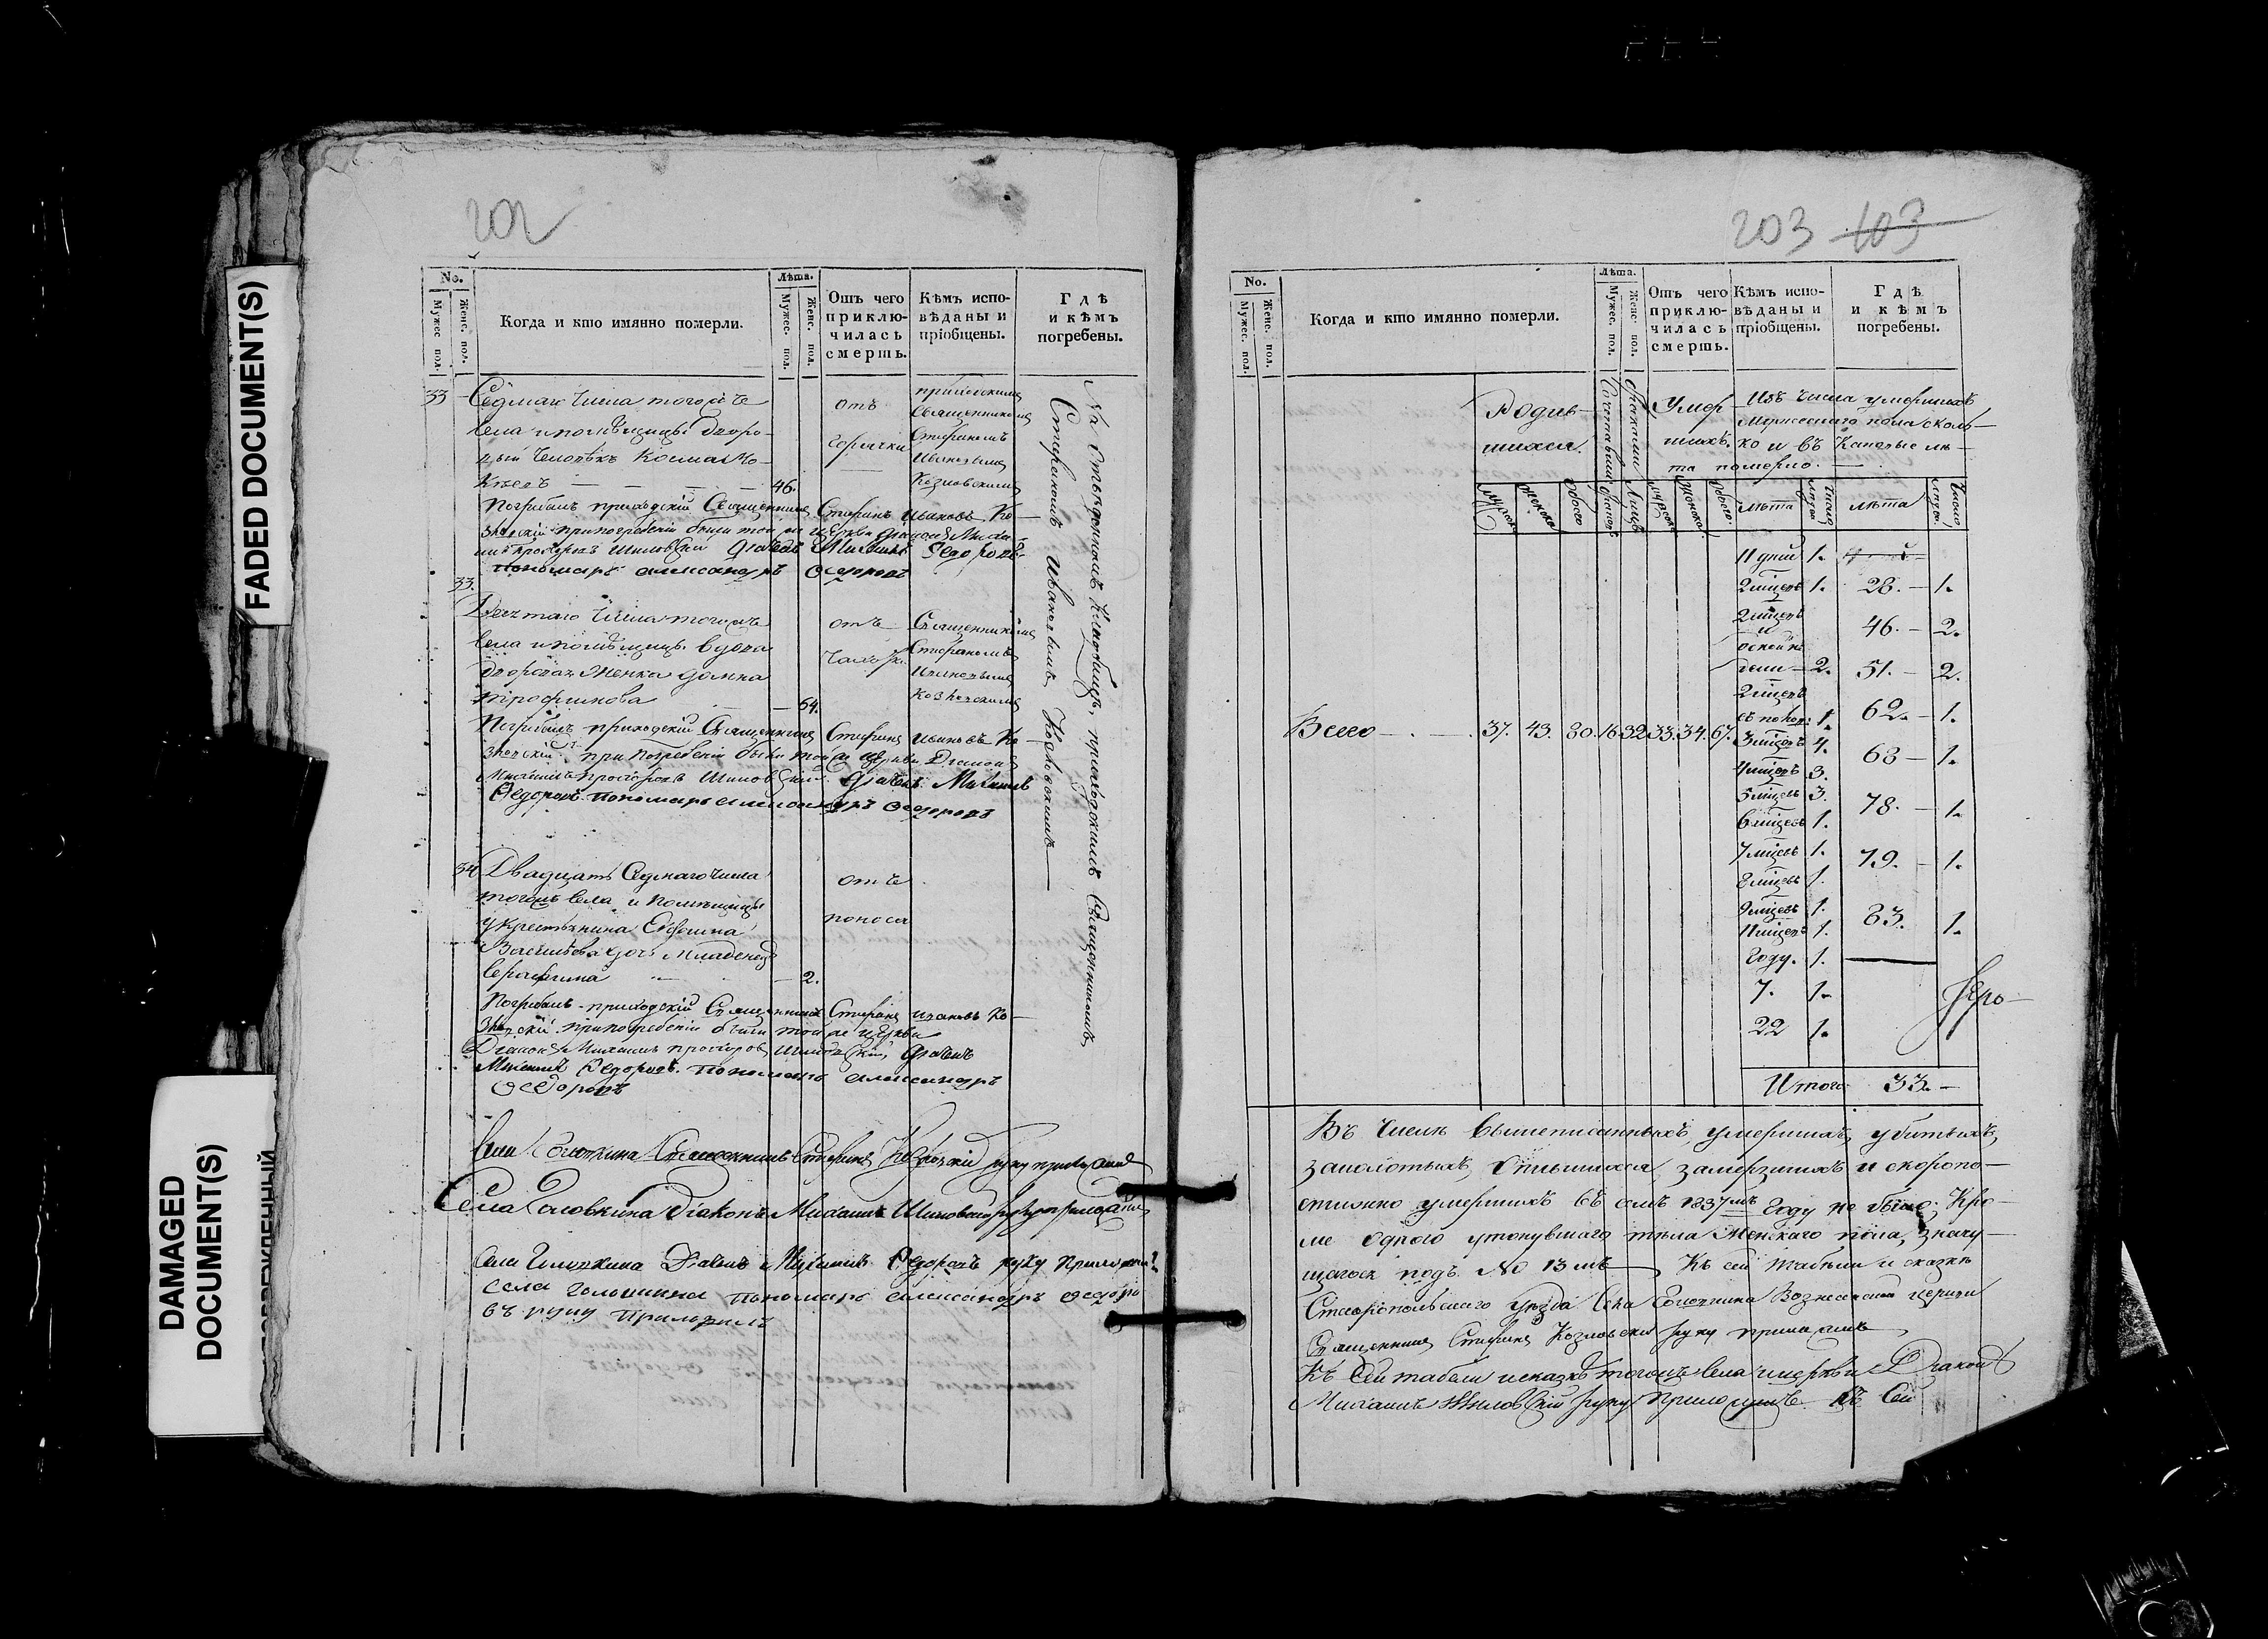 FADED DOCUMENT(S)
DAMAGED
DOCUMENT(S)
202
No.
Мужес. пол.
Женс. пол.
Когда и кто имянно померли.
Лѣта.
Мужес. пол.
Женс. пол.
Отъ чего
приклю-
чилась
смерть.
Кѣмъ испо-
вѣданы и
пріобщены.
Гдѣ
и кѣмъ
погребены.
33
Седмаго числа тогожъ
села и помѣщицы дворо-
вый человѣкъ Косма
46.
отъ
горячки
приходскимъ
Священникомъ
Стефаномъ
Ивановымъ
Козловскимъ
Погребалъ приходскій Священникъ Стефанъ Ивановъ Ко-
зловскій при погребеніи были той же церкви діаконъ Миха-
илъ Просторовъ Шиловскій дьячекъ Михаилъ Ѳедоровъ
пономарь александръ Ѳедоровъ
33.
числа тогожъ
села и помѣщицы вдова
дворовая Женка домна
трофимова
64.
отъ
чахотки
Священникомъ
Стефаномъ
Ивановымъ
Козловскимъ
Погребалъ приходскій Священникъ Стефанъ Ивановъ Ко-
зловскій при погребеніи были той же церкви Діаконъ
Михаилъ Просторовъ Шиловскій дьячекъ Михаилъ
Ѳедоровъ пономарь александръ Ѳедоровъ
34
Двадцать Седмаго числа
тогожъ села и помѣщицы
у крестьянина Ефима
Васильева дочь младенецъ
серафима
2.
отъ
поноса
Погребалъ приходскій Священникъ Стефанъ ивановъ Ко-
зловскій при погребеніи были той же церкви
Діаконъ Михаилъ Просторовъ Шиловскій дьячекъ
Михаилъ Ѳедоровъ пономарь александръ
Ѳедоровъ
На отведенномъ Кладбищѣ, приходскимъ Священникомъ
Стефаномъ Ивановымъ Козловскимъ
Села Головкина Священникъ Стефанъ Козловскій руку приложилъ
Села Головкина діаконъ Михаилъ Шиловскій руку приложилъ
Села Головкина Дьячекъ Михаилъ Ѳедоровъ руку приложилъ
села головкина пономарь александръ Ѳедоро
въ руку приложилъ
203 103
No.
Мужес. пол.
Женс. пол.
Когда и кто имянно померли.
Лѣта.
Мужес. пол.
Женс. пол.
Отъ чего
приклю-
чилась
смерть.
Кѣмъ испо-
вѣданы и
пріобщены.
Гдѣ
и кѣмъ
погребены.
Родив-
шихся.
Умер-
шихъ.
Изъ числа умершихъ
Мужескаго пола сколь-
ко и въ Каковые лѣ-
та померло.
лѣта
число
лѣта
число
11 дней 1.
2 мѣсецъ 1. 28. 1.
2 мѣсецъ
и
2. 46. 2.
51. 2.
2 мѣсецъ
съ полов: 1. 62. 1.
3 мѣсецъ 4. 63 1.
4 мѣсецъ 3.
5 мѣсецъ 3. 78. 1.
6 мѣсецъ 1.
7 мѣсецъ 1. 79. 1.
8 мѣсецъ 1.
9 мѣсецъ 1. 83. 1.
11 мѣсецъ 1.
Году. 1.
7. 1.
22 1.
Всего 37. 43. 80. 16 32 33. 34. 67.
Итого 33.
Въ числѣ вышеписанныхъ умершихъ, убитыхъ,
заколотыхъ, опившихся, замерзшихъ и скоропо-
стижно умершихъ въ семъ 1837мъ году не было; Кро-
ме одного утонувшаго тѣла Женскаго пола, значу-
щагося подъ № 13мъ Къ сей табели и сказкѣ
Ставропольскаго уѣзда Села Головкина Вознесенской церкви
Священникъ Стефанъ Козловскій руку приложилъ
Къ Сей табели и сказкѣ тогожъ села церкви Діаконъ
Михаилъ Шиловскій руку приложилъ Къ Сей